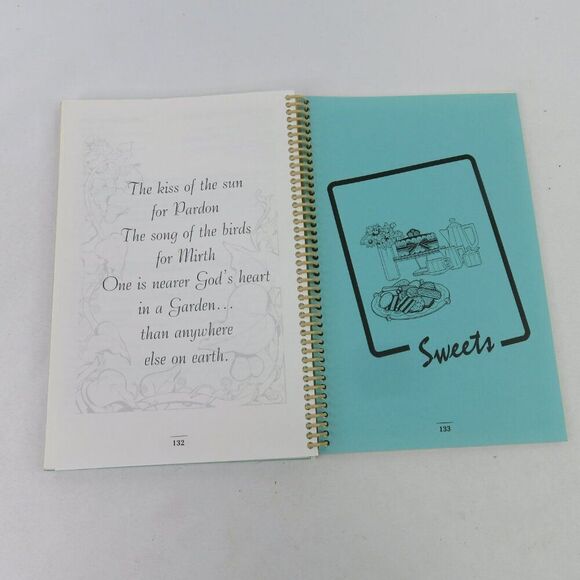 The kiss of the sun
for Pardon
The song of the birds
for Mirth
One is nearer God's heart
in a Garden...
than anywhere
else on earth.
132
Sweets
133